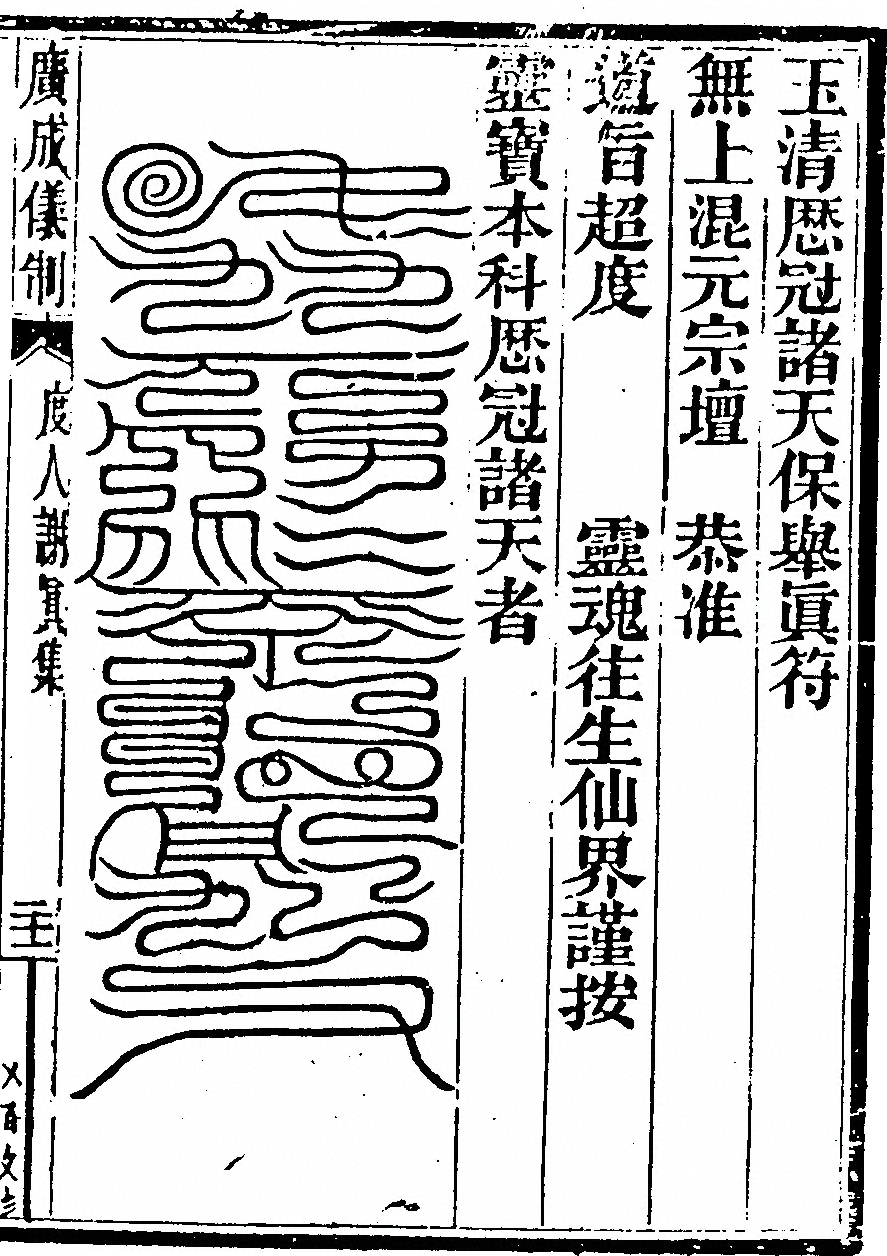 玉清歷冠諸天保舉眞符
無上混元宗壇　恭准
道旨超度　　　靈魂往生仙界謹按
靈寶本科歷冠諸天者
廣成儀制
度人謝眞集